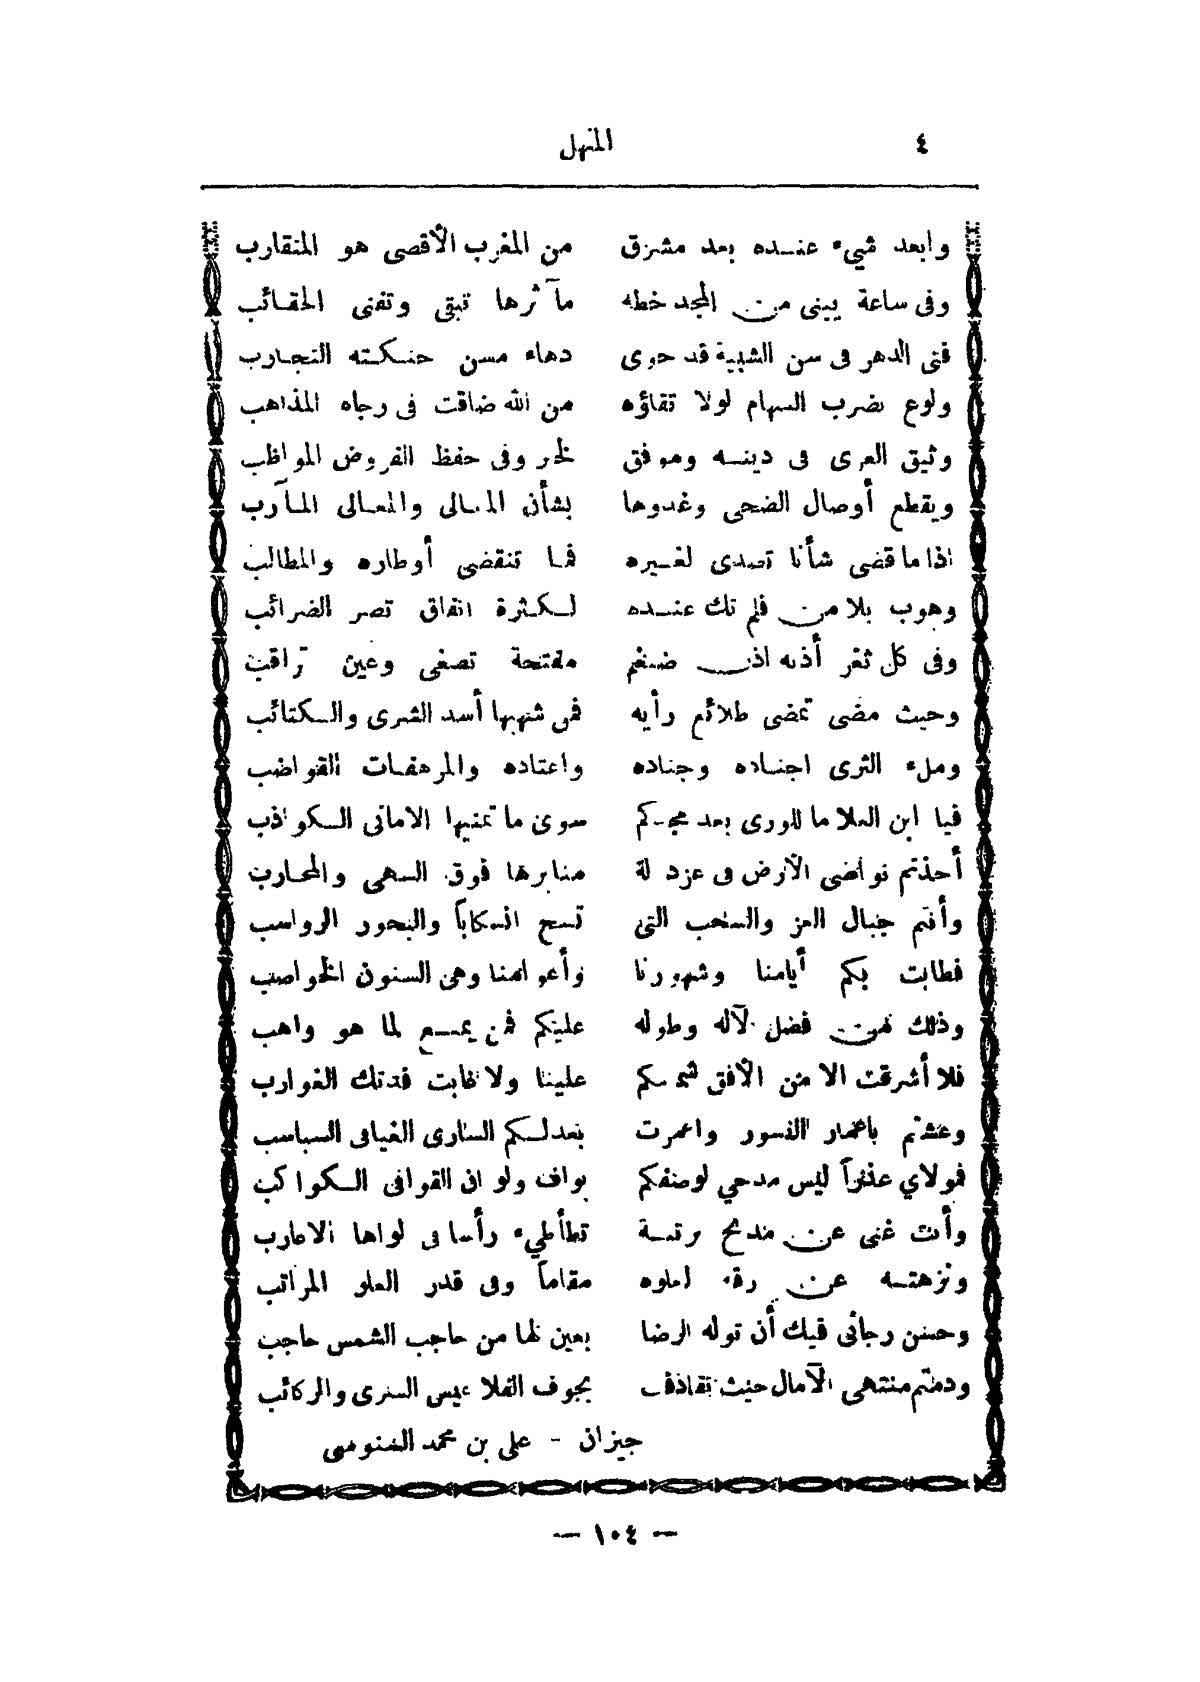 ٤ المنهل
وابعد شيء عنده بعد مشرق من المغرب الأقصى هو المتقارب
وفى ساعة يبنى من المجد خطة مآثرها تبقى وتفنى الحقائب
فتى الدهر فى سن الشبيبة قد حوى دهاء مسن حنكته التجارب
ولوع بضرب السهام لولا تقاؤه من الله ضاقت فى رجاه المذاهب
وثيق العرى فى دينه وموفق لخير وفى حفظ الفروض المواظب
ويقطع أوصال الضحى وغدوها بشأن المعالى والمعالى المآرب
اذا ما قضى شأنا تصدى لغيره فما تنقضى أوطاره والمطالب
وهوب بلا من فلم تك عنده لكثرة انفاق تصر الضرائب
وفى كل ثغر أذنه اذن ضيغم مفتحة تصغى وعين تراقب
وحيث مضى تمضى طلائع رأيه فمن شهبها أسد الشرى والكتائب
وملء الثرى اجناده وجناده واعتاده والمرهفات القواضب
فيا ابن العلا ما للورى بعد مجدكم سوى ما تمنيها الامانى الكواذب
أخذتم نواصى الأرض فى عزد لة منابرها فوق السهى والمحارب
وأنتم جبال العز والسحب التى تسح انسكاباً والبحور الرواسب
فطابت بكم أيامنا وشهورنا وأعوامنا وهى السنون الخواصب
وذلك من فضل الآله وطوله عليكم فمن يمنع لما هو واهب
فلا أشرقت الا من الأفق شمسكم علينا ولا غابت فدتك الغوارب
وعشتم باعمار النسور واعمرت بعدلكم السارى الفيافى السباسب
فمولاي عذراً ليس مدحي لوصفكم بواف ولو ان القوافى الكواكب
وأنت غنى عن مديح برتبة تطأطيء رأسا فى لواها الاطارب
ونزهته عن رقى املوه مقاماً وفى قدر العلو المراتب
وحسن رجائى فيك أن توله الرضا بعين لها من حاجب الشمس حاجب
ودمتم منتهى الآمال حيث تقاذفت بجوف الفلا عيس السرى والركائب
جيزان - على بن محمد السنوسى
— ١٠٤ —